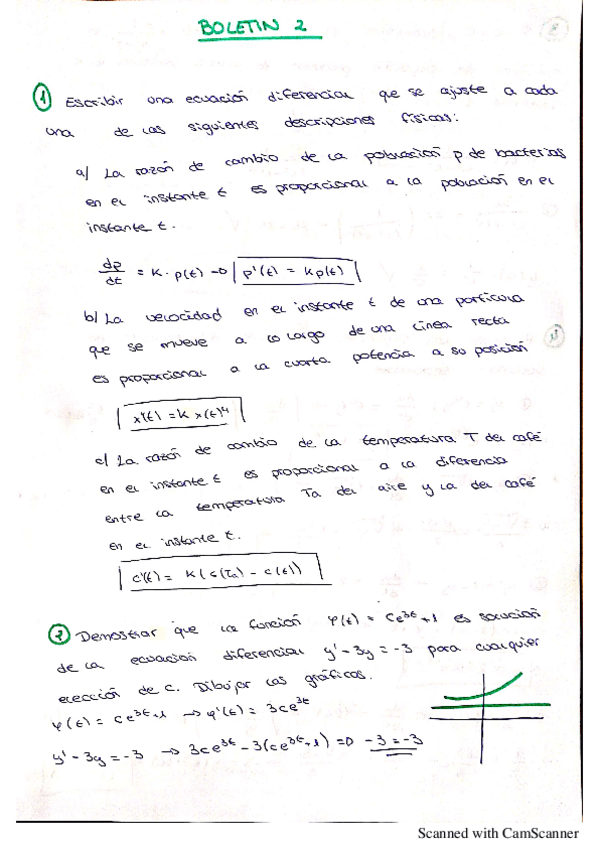 BOLETIN 2
① Escribir una ecuación diferencial que se ajuste a cada
una de las siguientes descripciones físicas:
a) La razón de cambio de la población p de bacterias
en el instante t es proporcional a la población en el
instante t.
dp/dt = K · p(t) → p'(t) = Kp(t)
b) La velocidad en el instante t de una partícula
que se mueve a lo largo de una línea recta
es proporcional a la cuarta potencia a su posición
x'(t) = K x(t)⁴
c) La razón de cambio de la temperatura T del café
en el instante t es proporcional a la diferencia
entre la temperatura Ta del aire y la del café
en el instante t.
c'(t) = K(c(Ta) - c(t))
② Demostrar que la función φ(t) = ce³ᵗ+1 es solución
de la ecuación diferencial y' - 3y = -3 para cualquier
elección de c. Dibujar las gráficas.
φ(t) = ce³ᵗ+1 → φ'(t) = 3ce³ᵗ
y' - 3y = -3 → 3ce³ᵗ - 3(ce³ᵗ+1) =D -3 = -3
Scanned with CamScanner